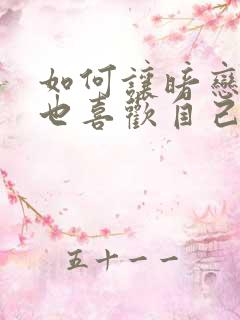 如何讓暗戀
也喜歡自己
五十一一